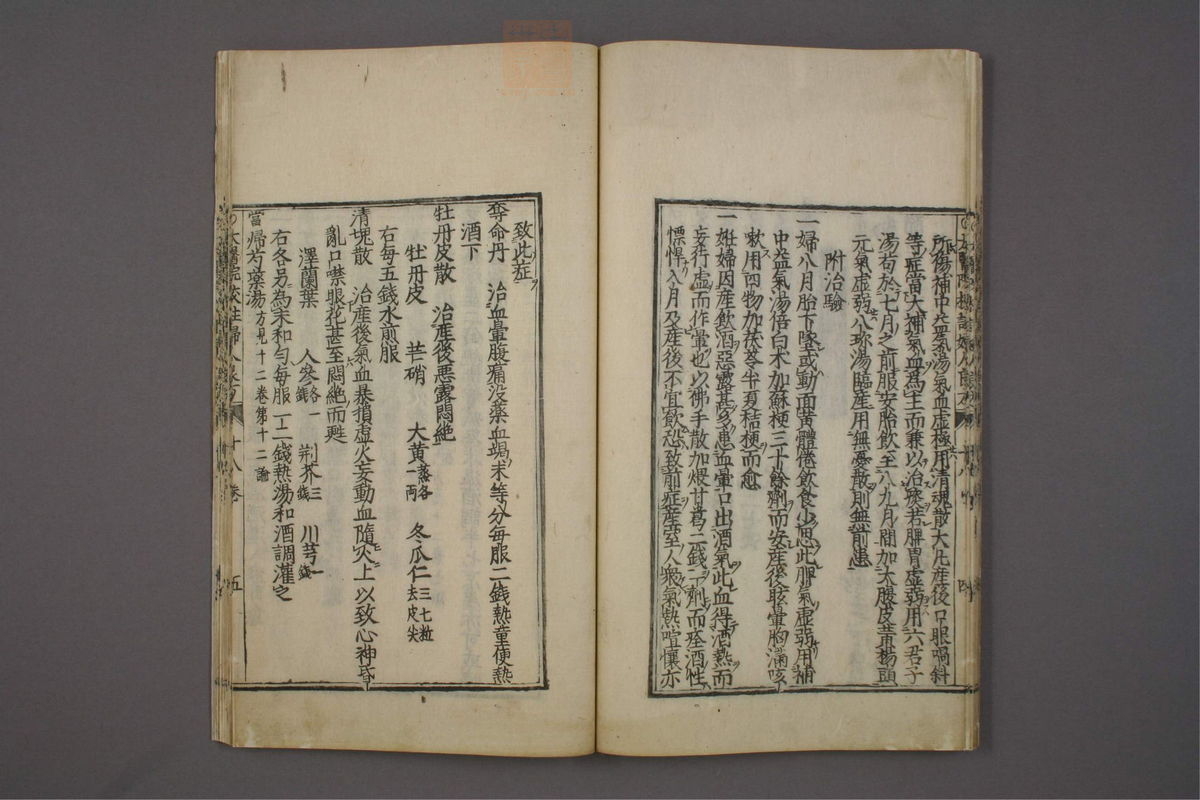 所傷補中益氣湯氣血虛極用清魂散大凡産後口眼喎斜
等症當大補氣血爲主而兼以治痰若脾胃虛弱用六君子
湯荀於七月之前服安胎飲至八九月間加大腹皮黄楊頭
元氣虛弱八珍湯臨産用無憂散則無前患
附治驗
一婦八月胎下墜或動面黄體倦飲食少思此脾氣虛弱用補
中益氣湯倍白朮加蘇梗三十餘劑而安産後眩暈胸滿咳
嗽用四物加茯苓半夏桔梗而愈
一姙婦因産飲酒惡露甚多患血暈口出酒氣此血得酒熱而
妄行虛而作暈也以佛手散加煨甘葛二錢一劑而痊酒性
慓悍入月及産後不宜飲恐致前症産室人衆氣熱喧懷亦
致此症
奪命丹　治血暈腹痛没藥血竭末等分每服二錢熱童便熱
酒下
牡丹皮散　治産後惡露悶絶
牡丹皮　芒硝　大黄蒸各一兩　冬瓜仁三七粒去皮尖
右每五錢水煎服
清塊散　治産後氣血暴損虛火妄動血隨火上以致心神昏
亂口噤眼花甚至悶絶而甦
澤蘭葉　人參各一錢　荊芥三錢　川芎一錢
右各另為末和勻每服一二錢熱湯和酒調灌之
當歸芍藥湯方見十二卷第十二論
十八卷　五